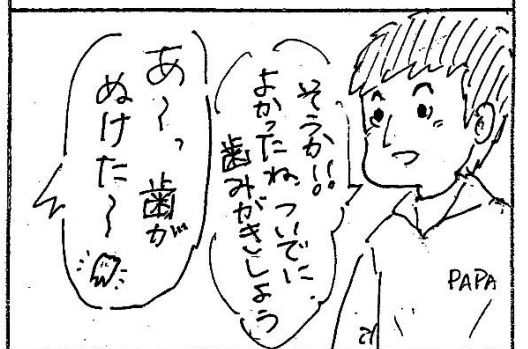 そうか!!
よかったね、ついでに
歯みがきしよう
あ〜っ、歯が
ぬけた〜
PAPA